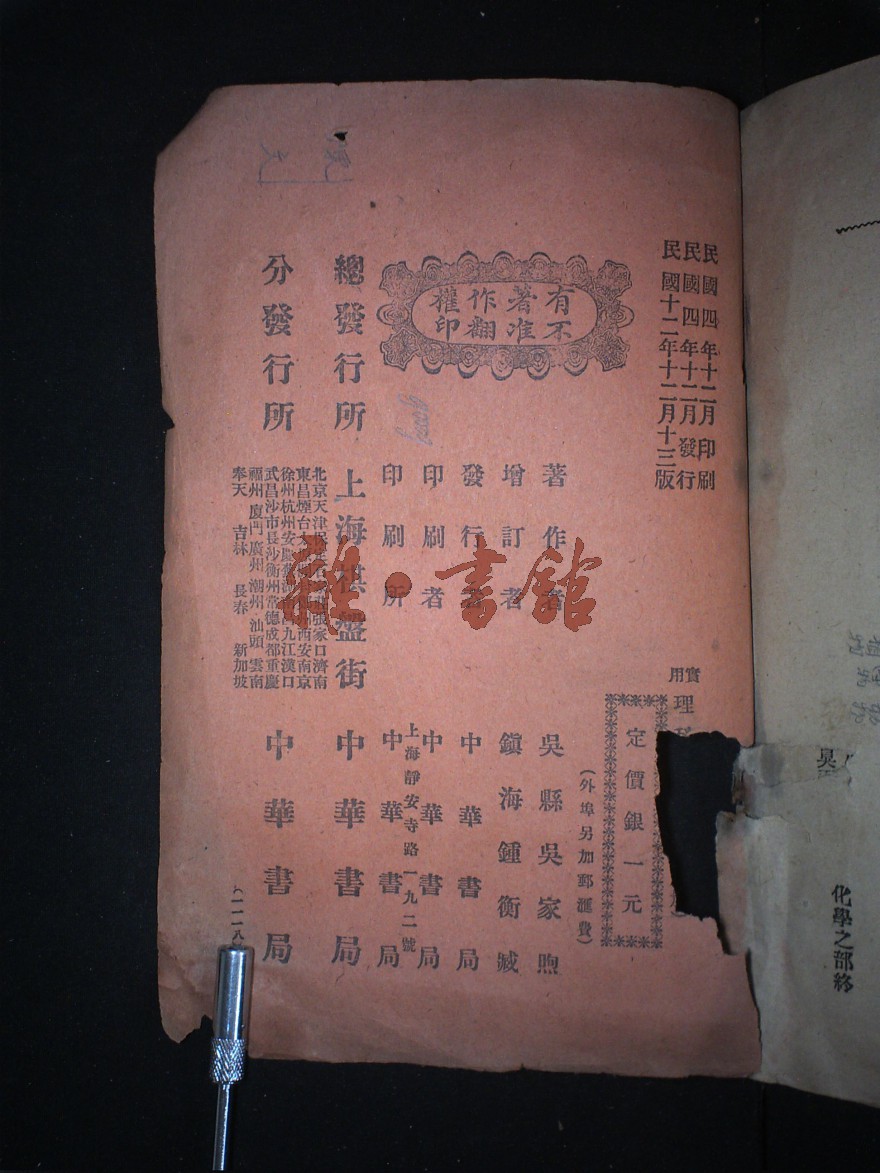 民國四年十二月印刷
民國四年十二月發行
民國十二年十二月十三版
有著作權
不准翻印
實用
理
定價銀一元
(外埠另加郵滙費)
著作者 吳縣吳家煦
增訂者 鎭海鍾衡臧
發行者 中華書局
印刷者 中華書局
上海靜安寺路一九二號
印刷所 中華書局
總發行所 上海棋盤街 中華書局
分發行所 中華書局
北京天津 張家口濟南
東昌煙台 西安南京
徐州杭州安慶 九江漢口
武昌沙市長沙衡州常德成都重慶
福州廈門廣州潮州汕頭雲南
奉天 吉林 長春 新加坡
(一一八
雜·書館
化學之部終